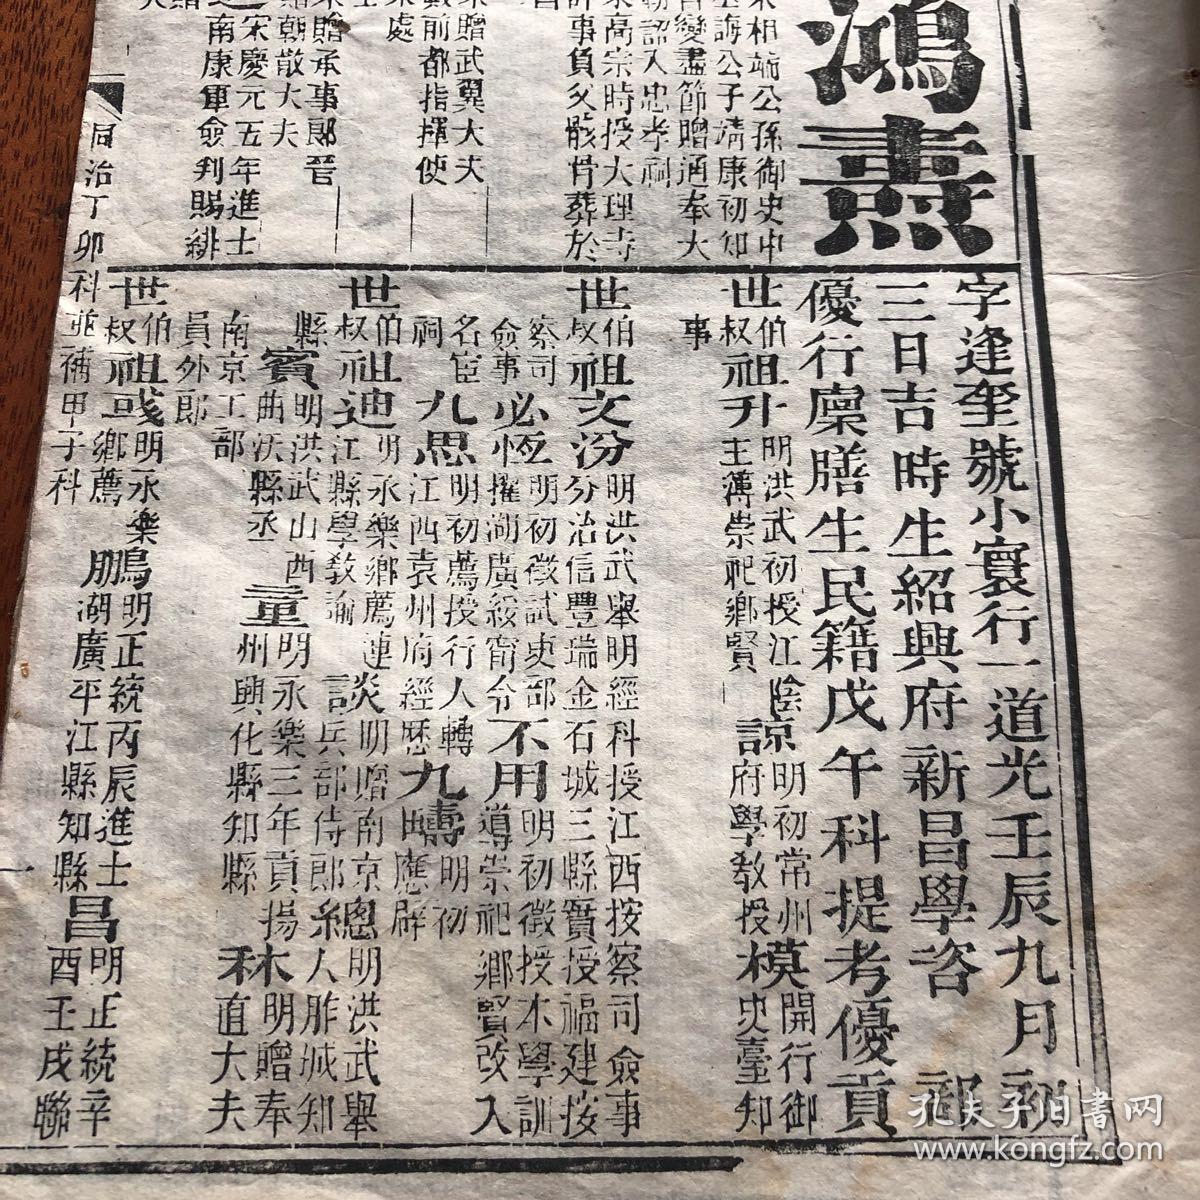 鴻燾
字逢奎號小寰行一道光壬辰九月初
三日吉時生紹興府新昌學咨部
優行廩膳生民籍戊午科提考優貢
宋相端公孫御史中
公誨公子靖康初知
盡節贈通奉大
入忠孝祠
高宗時授大理寺
事負父骸骨葬於
贈武翼大夫
前都指揮使
處
贈承事郎晉
朝散大夫
宋慶元五年進士
南康軍僉判賜緋
世伯叔祖升明洪武初授江陰主簿崇祀鄉賢
諒明初常州府學教授
模開行御史臺知
事
世伯叔祖文汾明洪武舉明經科授江西按察司僉事分治信豐瑞金石城三縣實授福建按
察司僉事
必恆明初徵試吏部擢湖廣綏甯令
不用明初徵授本學訓導崇祀鄉賢改入
名宦祠
九思明初薦授行人轉江西袁州府經歷
九疇明初應辟
世伯叔祖迪明永樂鄉薦連江縣學教諭
談明贈南京兵部侍郎
總明洪武舉人胙城知
縣
賓明洪武山西曲沃縣丞
童明永樂三年貢揚州興化縣知縣
秋明贈奉直大夫
南京工部員外郎
世伯叔祖彧明永樂鄉薦
鵬明正統丙辰進士湖廣平江縣知縣
昌明正統辛酉壬戌聯
同治丁卯科並補甲子科
一
孔夫子旧書网
www.kongfz.com